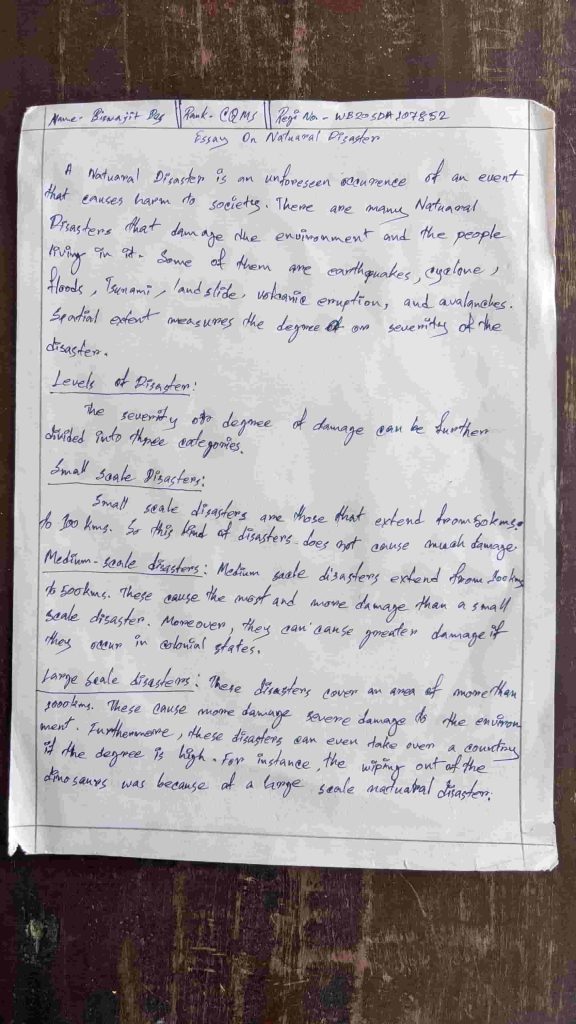 Name - Biswajit Das || Rank - CQMS || Regi No. - WB20SDA107852
Essay On Natuaral Disaster
A Natuaral Disaster is an unforeseen occurence of an event
that causes harm to society. There are many Natuaral
Disasters that damage the environment and the people
living in it. Some of them are earthquakes, cyclone,
floods, Tsunami, landslide, volcanic eruption, and avalanches.
Spatial extent measures the degree or severity of the
disaster.
Levels of Disaster:
The severity or degree of damage can be further
divided into three categories.
Small Scale Disasters:
Small scale disasters are those that extend from 50kms.
to 100 kms. So this kind of disasters does not cause much damage.
Medium-scale disasters: Medium scale disasters extend from 100kms
to 500kms. These cause the most and more damage than a small
scale disaster. Moreover, they can cause greater damage if
they occur in colonial states.
Large Scale disasters: These disasters cover an area of more than
1000kms. These cause more damage severe damage to the environ
ment. Furthermore, these disasters can even take over a country
if the degree is high. For instance, the wiping out of the
dinosaurs was because of a large scale natuaral disaster.